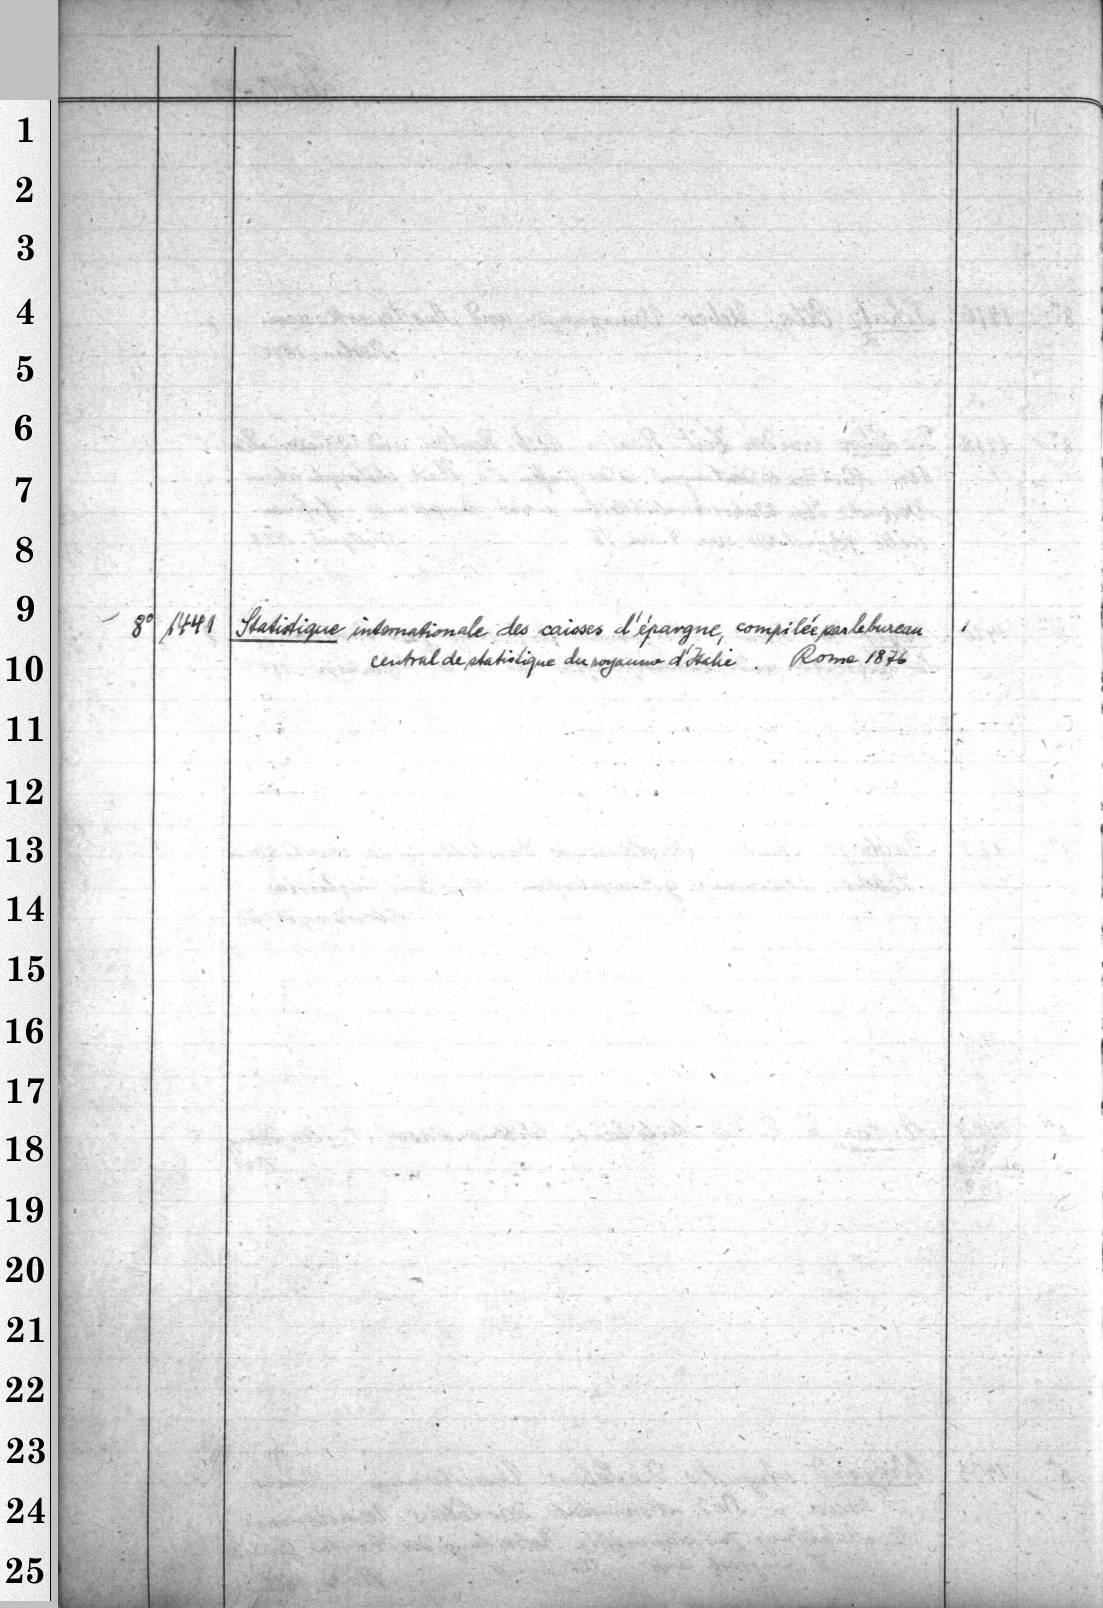 1
2
3
4
5
6
7
8
9
8° 1441 Statistique internationale des caisses d'épargne, compilée par le bureau 1
10
central de statistique du royaume d'Italie. Rome 1876
11
12
13
14
15
16
17
18
19
20
21
22
23
24
25